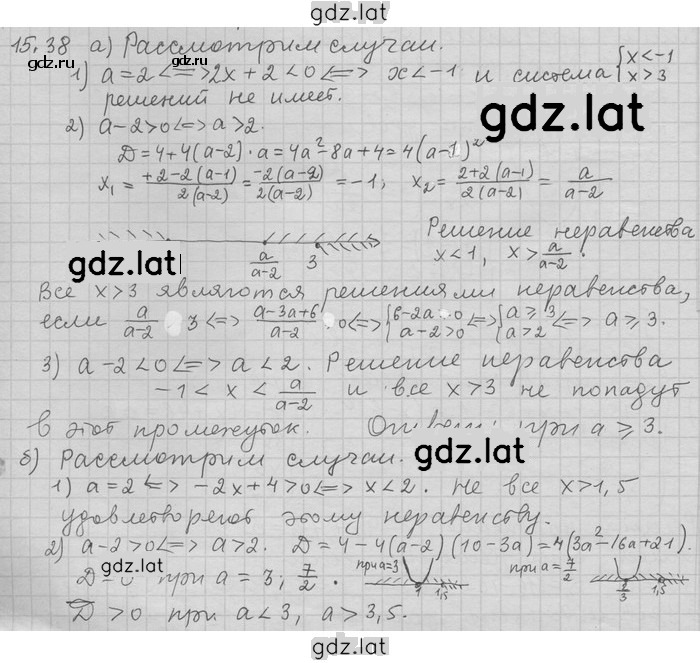 gdz.lat
15.38 а) Рассмотрим случаи.
1) a=2 <=> 2x+2<0 <=> x<-1 и система {x<-1 x>3
решений не имеет.
gdz.lat
2) a-2>0 <=> a>2.
D=4+4(a-2)·a=4a²-8a+4=4(a-1)²
x₁ = +2-2(a-1)/2(a-2) = -2(a-2)/2(a-2) = -1; x₂ = 2+2(a-1)/2(a-2) = a/a-2
a/a-2 3 Решение неравенства
x<1, x> a/a-2.
gdz.lat
Все x>3 являются решениями неравенства,
если a/a-2 3 <=> a-3a+6/a-2 0 <=> {6-2a 0 a-2>0 <=> {a≥3 a>2 <=> a≥3.
3) a-2<0 <=> a<2. Решение неравенства
-1 < x < a/a-2 и все x>3 не попадут
в этот промежуток. при a≥3.
gdz.lat
б) Рассмотрим случаи.
1) a=2 <=> -2x+4>0 <=> x<2. Не все x>1,5
удовлетворяют этому неравенству.
2) a-2>0 <=> a>2. D=4-4(a-2)(10-3a)=4(3a²-16a+21).
gdz.lat
при a=3; 7/2. при a=3 1 1,5 при a=7/2 2/3 1,5
D>0 при a<3, a>3,5.
gdz.lat